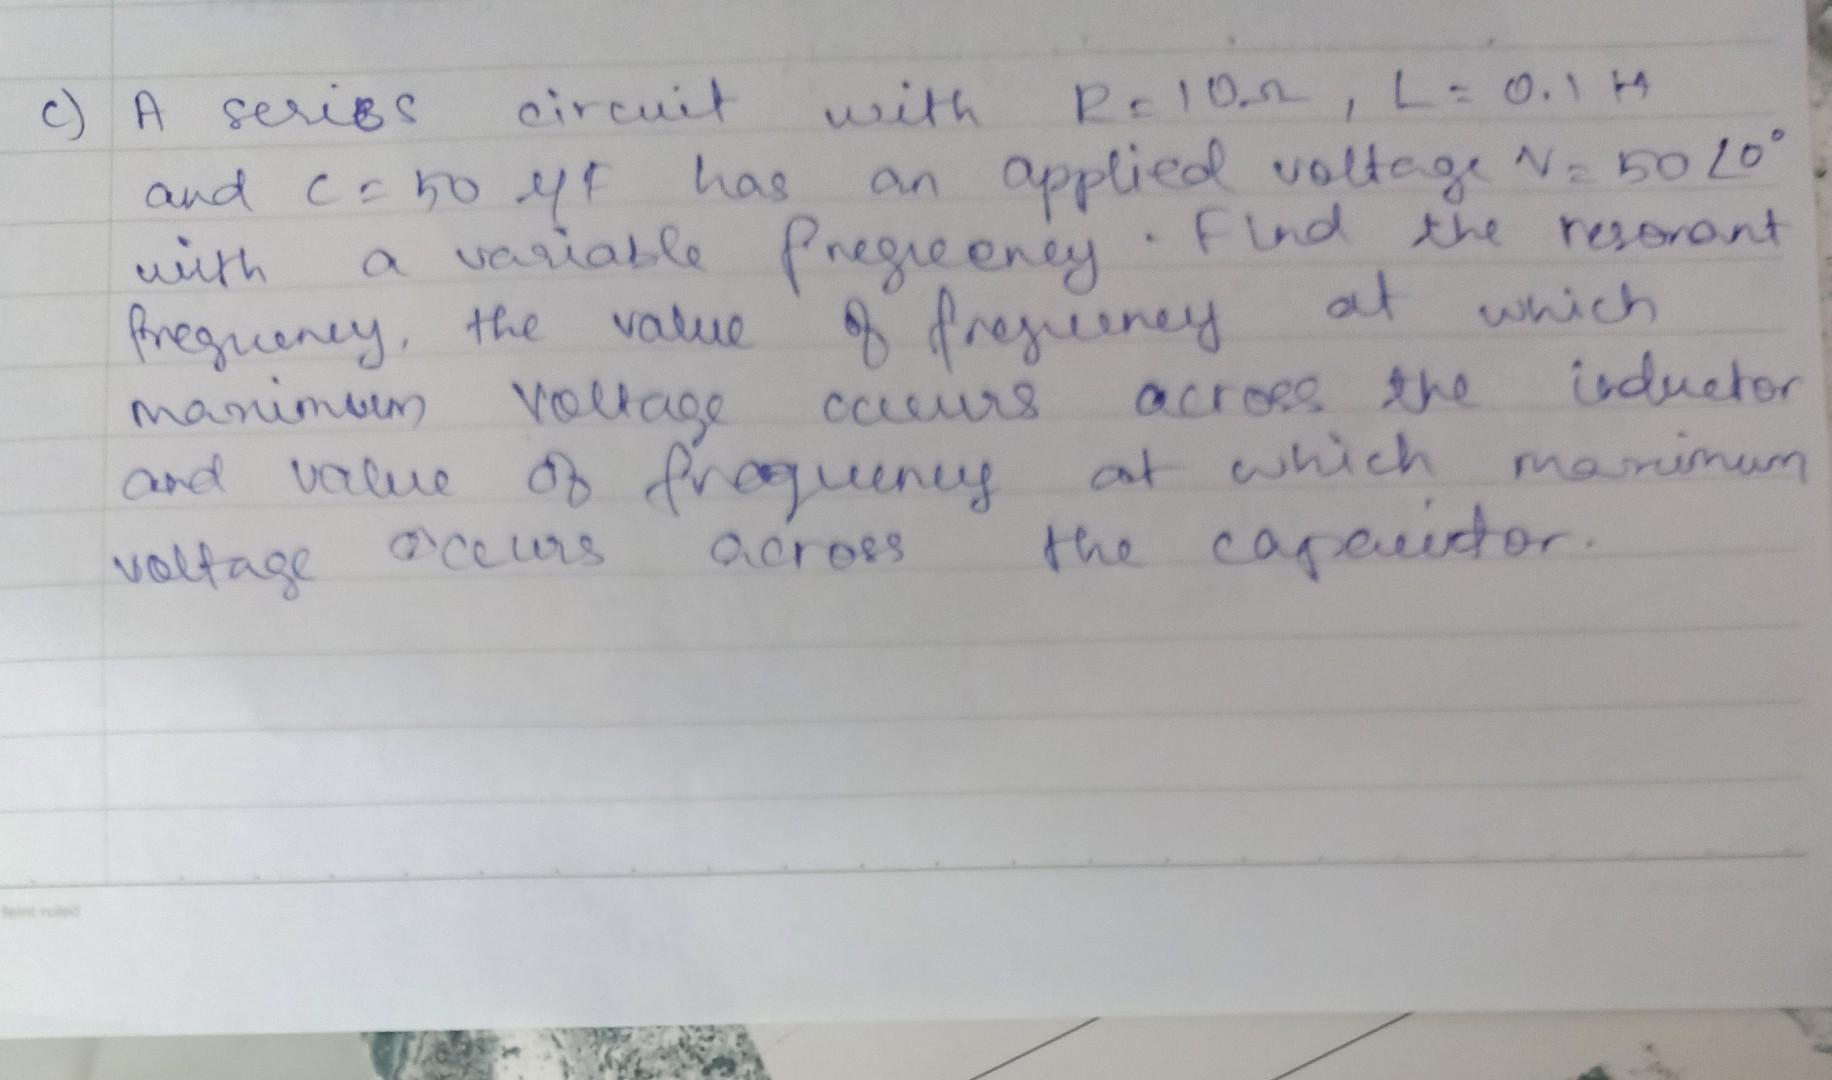 c) A series circuit with R = 10Ω, L = 0.1 H
and C = 50 μF has an applied voltage V = 50∠0°
with a variable frequency. Find the resonant
frequency, the value of frequency at which
maximum voltage occurs across the inductor
and value of frequency at which maximum
voltage occurs across the capacitor.
feint ruled